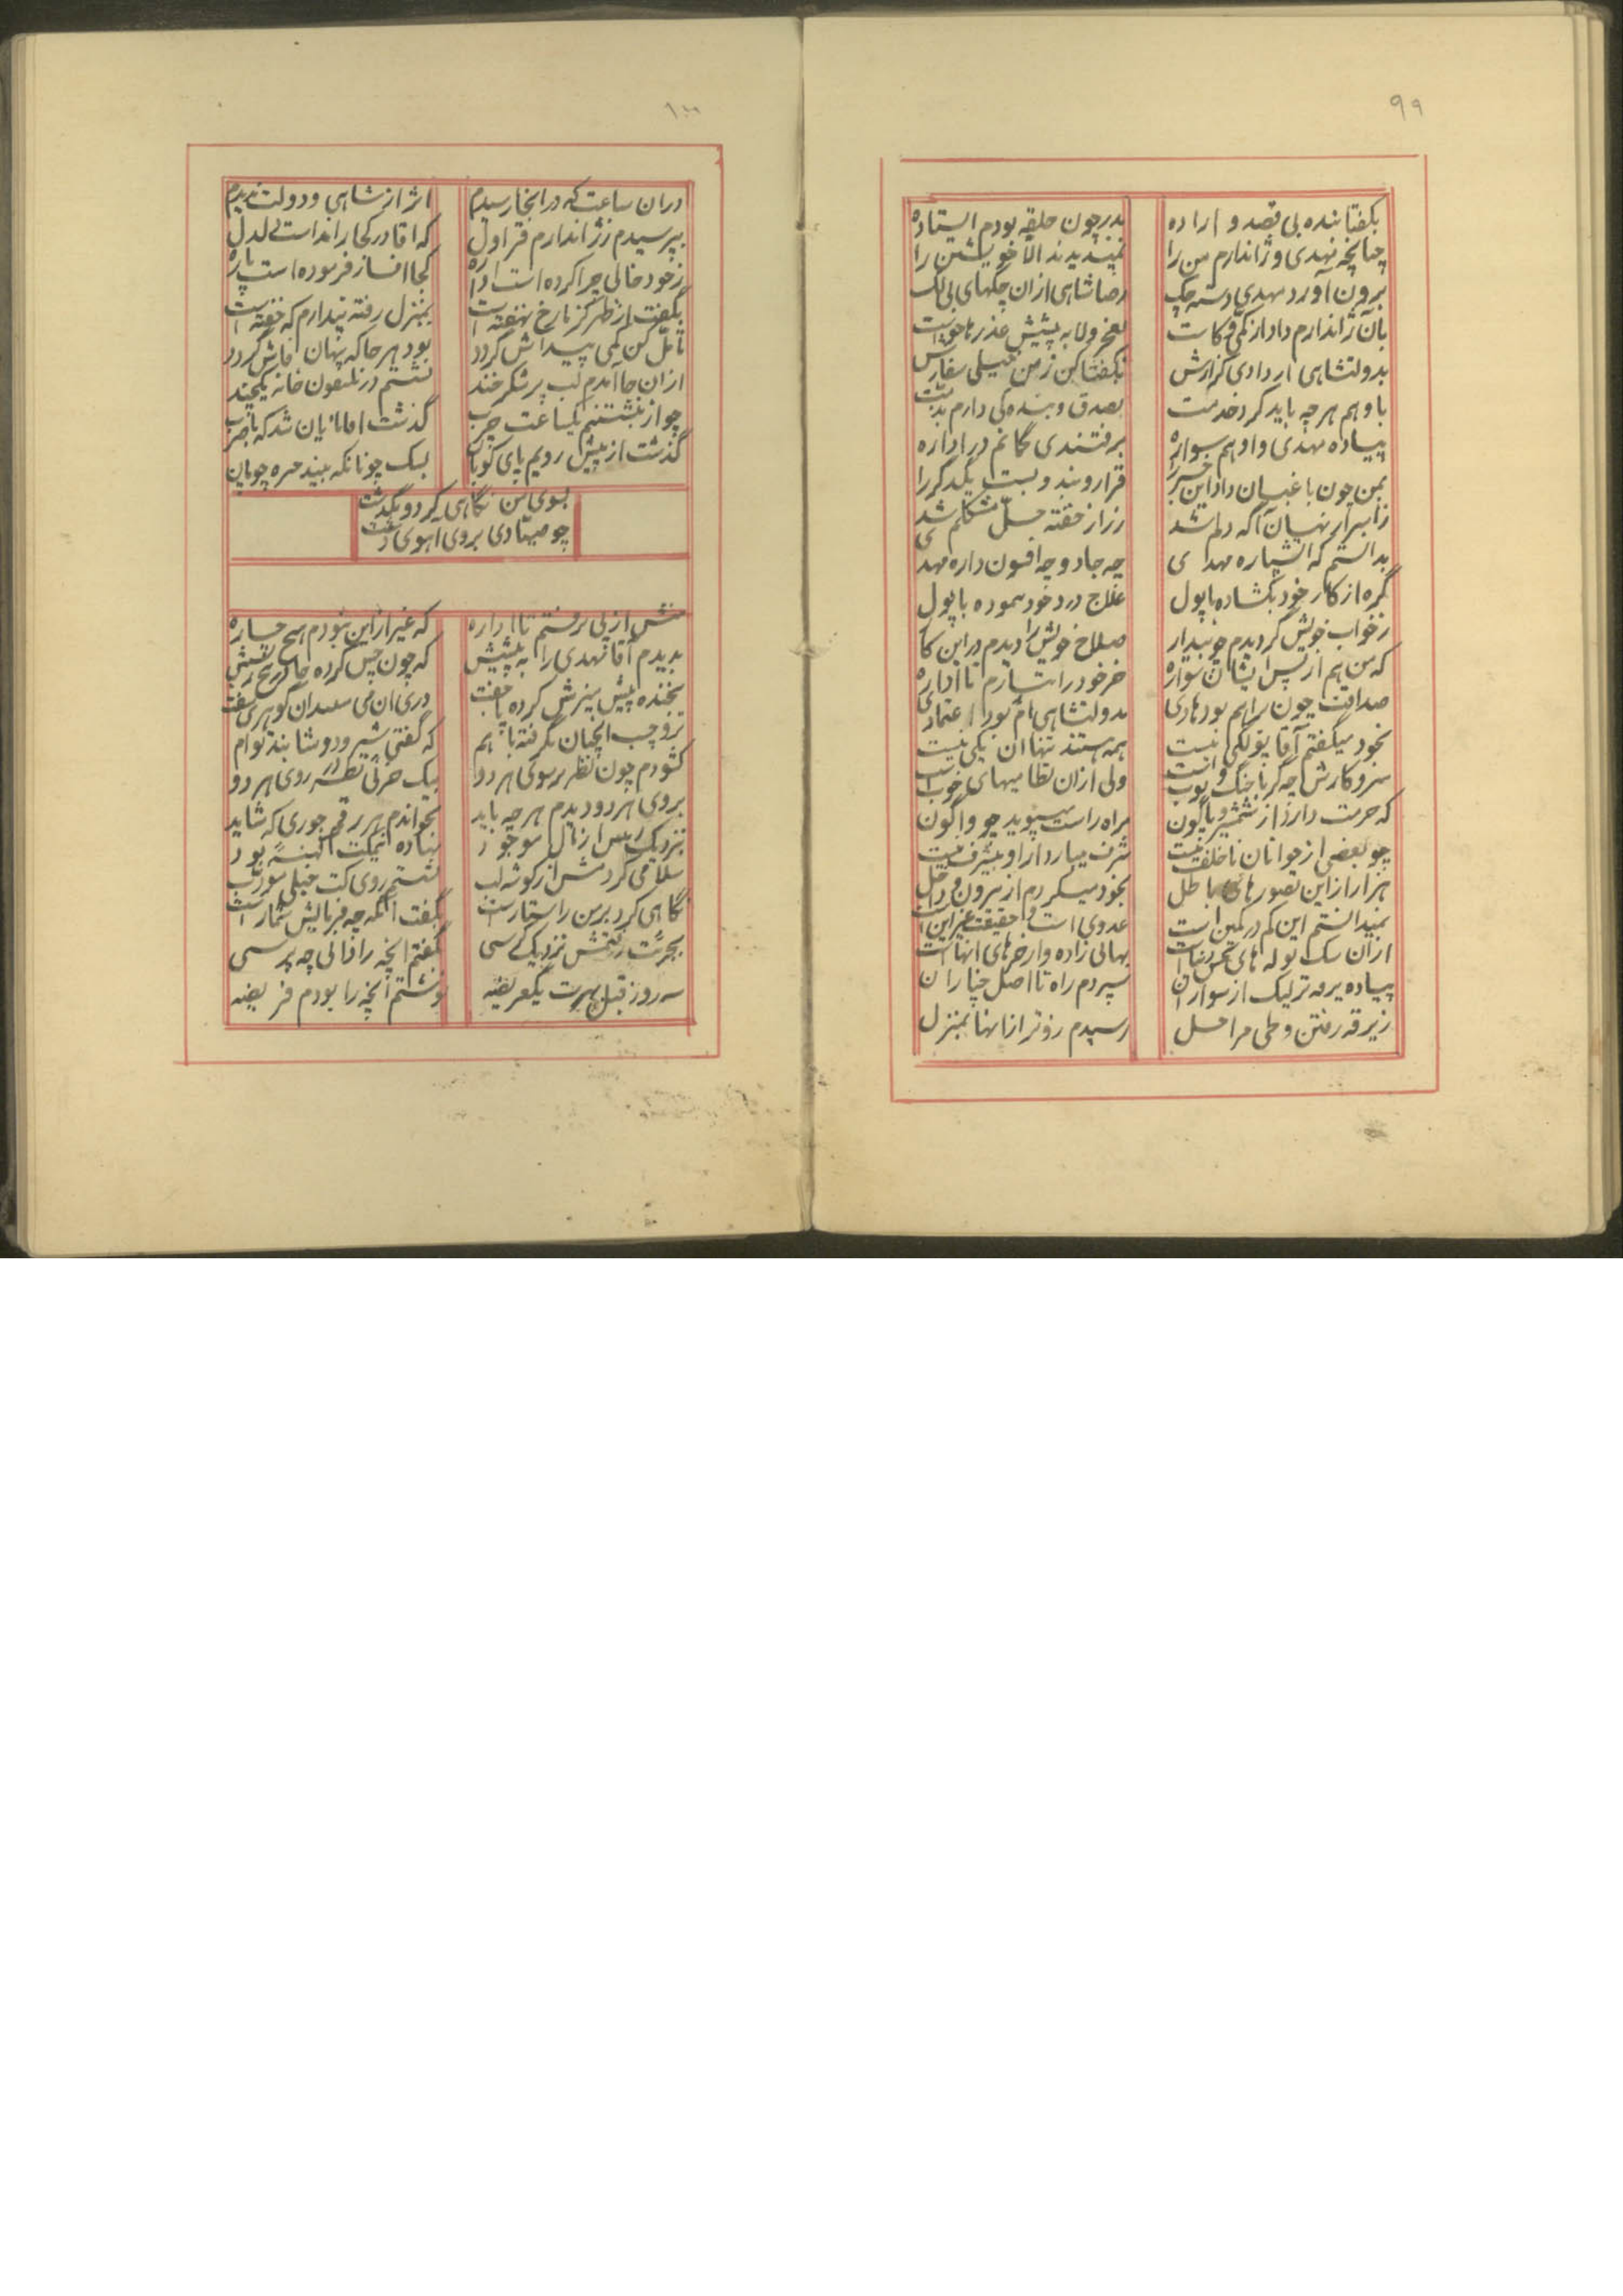 ۹۹
بگفتا بنده بی قصد و اراده
بدر چون حلقه بودم ایستاده
چنانچه مهدی و ژاندارم من را
ندیدند الا خویشتن را
برون آورد مهدی دسته چک
رضا شاهی ازان چکهای بی لک
بآن ژاندارم داد از کمی و کاست
بعجز و لابه پیشش عذرها خواست
بدولتشاهی ار دادی گزارش
بگفتا کن ز من خیلی سفارش
با و هم هر چه باید کرد خدمت
بصدق و بنده گی دارم بدمت
پیاده مهدی و او هم سواره
برفتندی گمانم در اداره
بمن چون باغبان داد این خبر را
قرار و بند و بست یکدگر را
ز اسرار نهان آگه دلم شد
رزاز خفته حل مشکلم شد
بدانستم که اشپاره مهدی
چه جادو چه افسون داره مهدی
گره از کار خود بگشاده با پول
علاج درد خود نموده با پول
ز خواب خویش گردیدم چو بیدار
صلاح خویش را دیدم در این کار
که من هم از پس ایشان سواره
خر خود را بتازم تا اداره
صداقت چون براهم بود هادی
بدولتشاهی ام بود اعتمادی
بخود میگفتم آقا پولکی نیست
همه هستند تنها آن یکی نیست
سر و کارش چه گر با جنگ و توپ است
ولی ازان نظامیهای خوب است
که حرمت دارد از شمشیر و پاگون
براه راست میپوید چو واگون
چو بعضی از جوانان ناخلف نیست
شرف میبارد از او بیشرف نیست
هزار از این تصورهای باطل
بخود میکردم از بیرون و داخل
نمیدانستم این کم در کمین است
عدوی است و حقیقت غیر این است
ازان سگ توله های نحس دنیاست
نهالی زاده وارخرهای انهاست
پیاده یرقه تر لیک از سواران
سپردم راه تا اصل چناران
ز یرقه رفتن و طی مراحل
رسیدم زوتر از انها بمنزل
۱۰۰
دران ساعت که در انجا رسیدم
اثر از شاهی و دولت ندیدم
بپرسیدم ز ژاندارم قراول
که اقا در کجا رانداست دلدل
ز خود خالی چرا کرده است اداره
کجا افسار فرموده است پاره
بگفت از ظهر کز ما رخ نهفته است
بمنزل رفته پندارم که خفته است
تامل کن کمی پیداش گردد
بود هر جا که پنهان فاش گردد
ازان جا آمدم لب پر شکر خند
نشستم در تلفون خانه یکچند
چو از بنشستنم یکساعت چرب
گذشت اقا نمایان شد که با ضرب
گذشت از پیش رویم پای کوبان
بسک چونانکه بیند بره چوپان
بسوی من نگاهی کرد و بگذشت
چو صیادی بروی اهوی دشت
منش از پی برفتم تا اداره
که غیر از این نبودم هیچ چاره
بدیدم آقا مهدی را به پیشش
که چون چس کرده جا در بیخ ریشش
بخنده پیش میزش کرده پا جفت
تر و چسب انچنان بگرفته با هم
که گفتی شیر و دوشابند توام
گشودم چون نظر بر سوی هر دو
بیک حرفی نظر در روی هر دو
بروی هر دو دیدم هر چه باید
بخواندم هر رقم جوری که شاید
بنزدیک پس از نال موجود
نهاده نیمکت کهنه بود
سلامی کردمش از گوشه لب
نشستم روی کت خیلی مودب
نگاهی کرد بر من راستا راست
بگفت آنگه چه فرمایش شما راست
بجرئت رفتمش نزدیک کرسی
بگفتم انچه را دانی چه پرسی
سه روز قبل بهرت یکعریضه
نوشتم آنچه را بودم فریضه